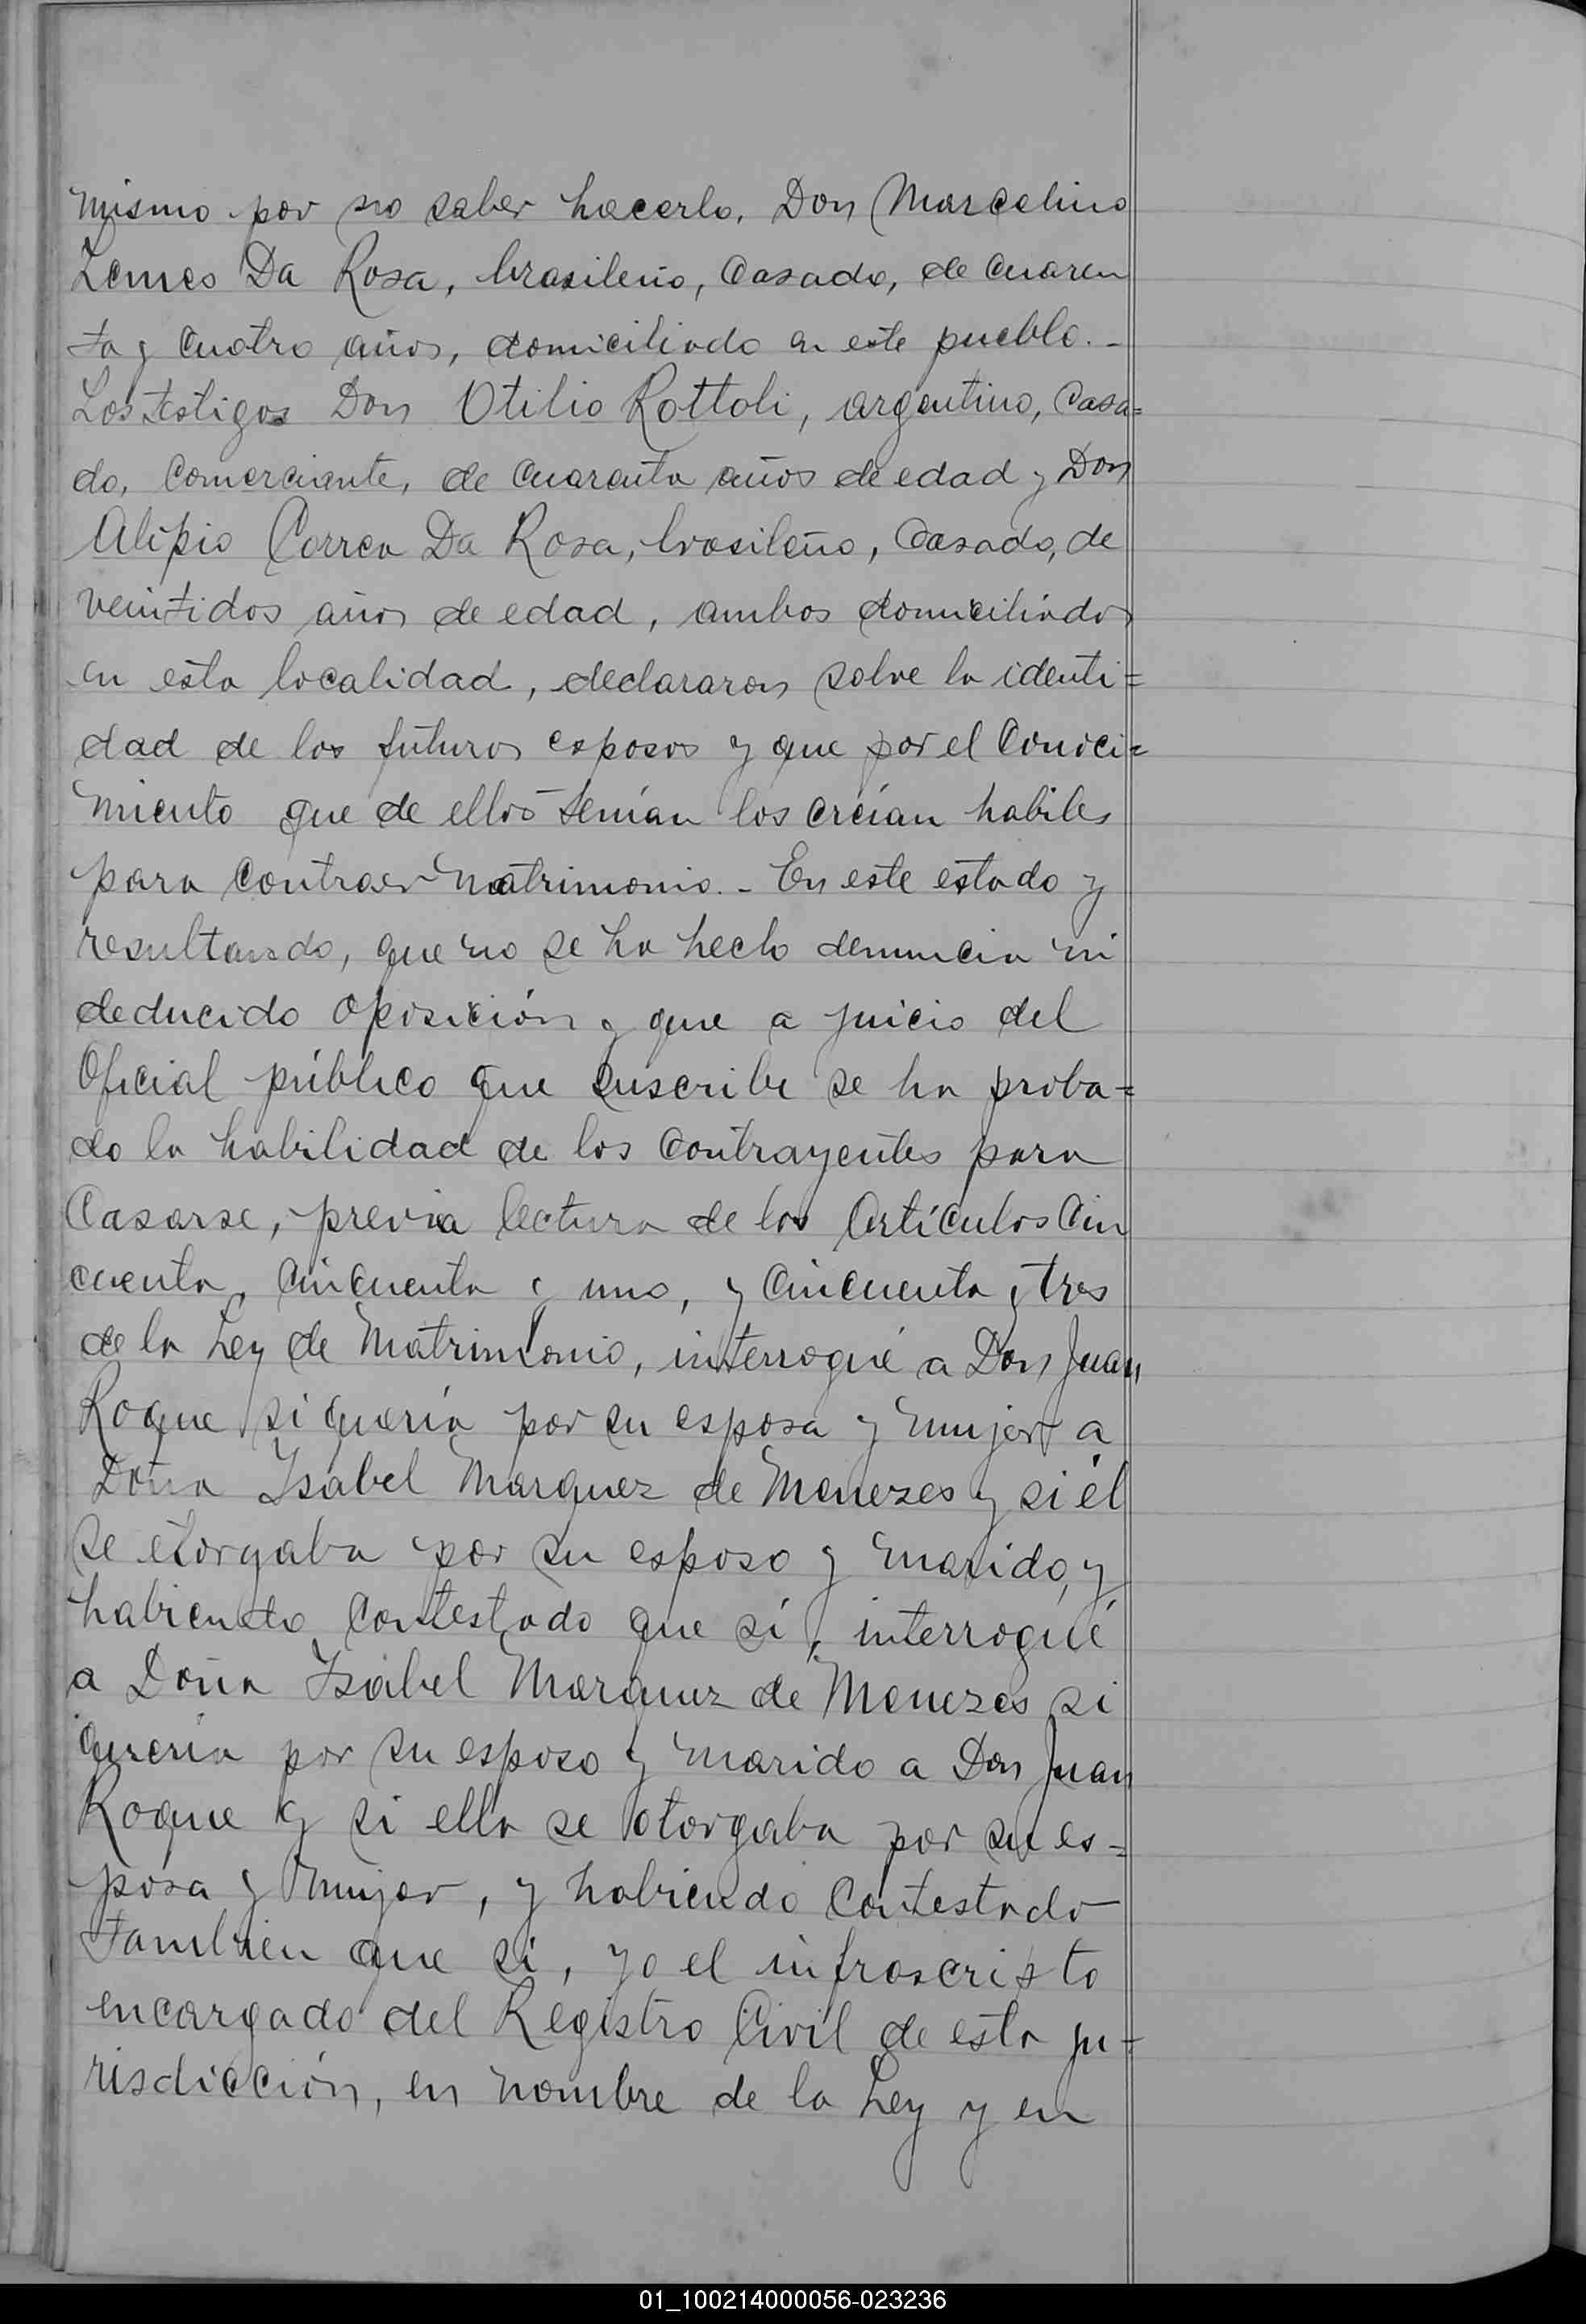 mismo por no saber hacerlo, Don Marcelino
Lemes Da Rosa, brasileño, casado, de cuaren
ta y cuatro años, domiciliado en este pueblo.-
Los testigos Don Otilio Rottoli, argentino, casa=
do, comerciante, de cuarenta años de edad y Don
Alipio Correa Da Rosa, brasileño, casado, de
veintidos años de edad, ambos domiciliados
en esta localidad, declararon sobre la identi=
dad de los futuros esposos y que por el conoci=
miento que de ellos tenían los creían habiles
para contraer matrimonio.- En este estado y
resultando, que no se ha hecho denuncia ni
deducido oposición y que a juicio del
Oficial público que suscribe se ha proba=
do la habilidad de los contrayentes para
casarse, previa lectura de los artículos cin
cuenta, cincuenta y uno, y cincuenta y tres
de la Ley de Matrimonio, interrogué a Don Juan
Roque si quería por su esposa y mujer a
Doña Ysabel Marquez de Menezes y si él
se otorgaba por su esposo y marido, y
habiendo contestado que sí, interrogué
a Doña Ysabel Marquez de Menezes si
quería por su esposo y marido a Don Juan
Roque y si ella se otorgaba por su es=
posa y mujer, y habiendo contestado
tambien que si, yo el infrascripto
encargado del Registro Civil de esta ju=
risdicción, en nombre de la Ley y en
01_100214000056-023236